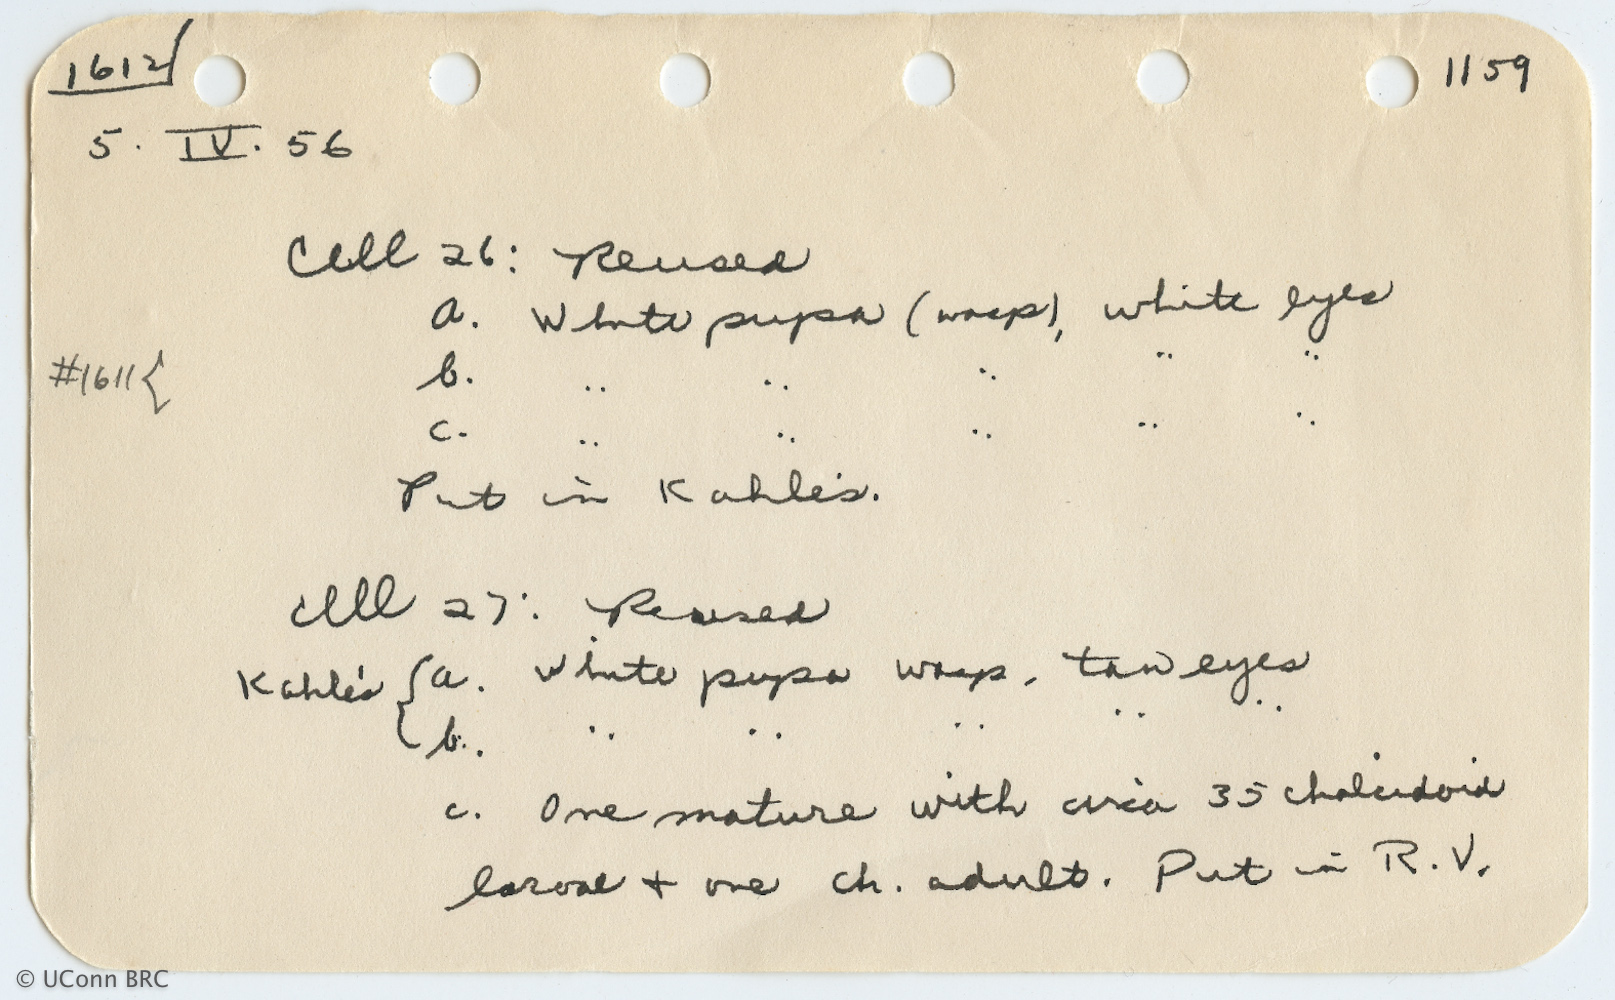 1612 1159
5. IV. 56
Cell 26: Reused
a. White pupa (wasp), white eyes
#1611{ b. " " " " "
c. " " " " "
Put in Kahle's.
Cell 27: Reused
Kahle's { a. White pupa wasp, tan eyes
b. " " " " "
c. One mature with circa 35 chalcidoid
larvae + one ch. adult. Put in R.V.
© UConn BRC